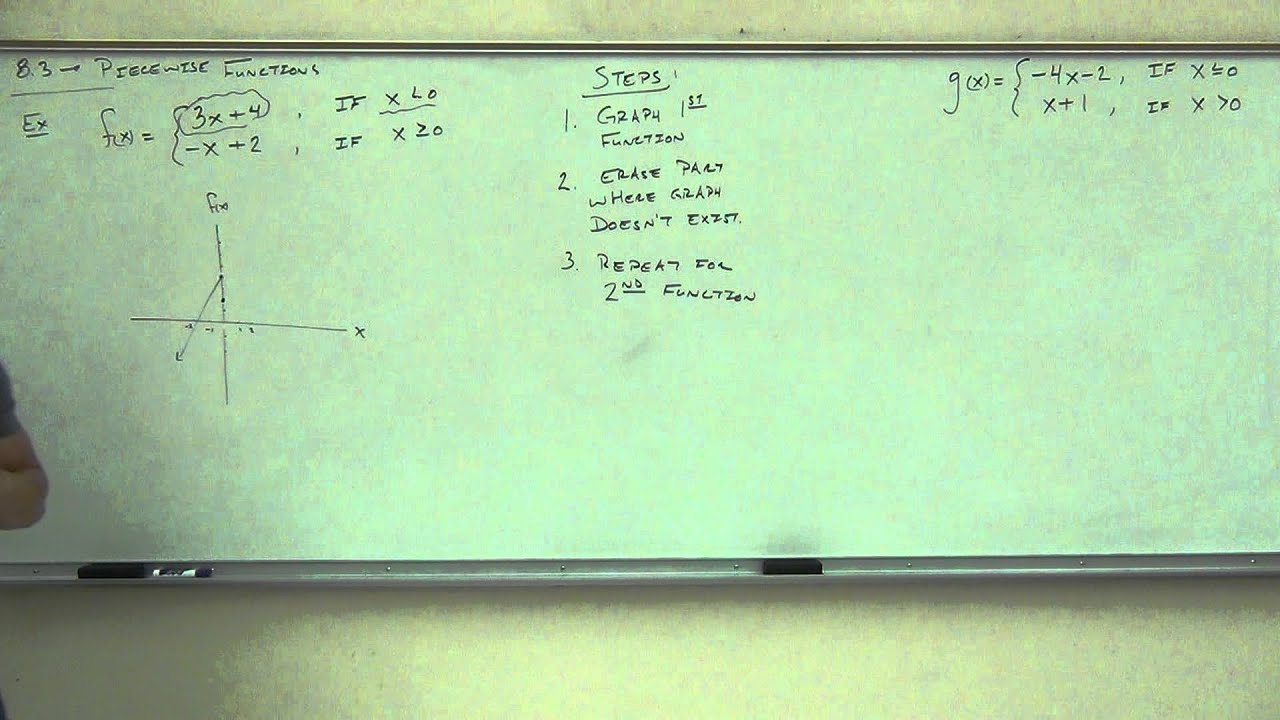 8.3 → PIECEWISE FUNCTIONS
Ex f(x) = { 3x+4, IF x < 0
-x+2, IF x ≥ 0
f(x)
-2 -1 1 2 x
STEPS:
1. GRAPH 1ST
FUNCTION
2. ERASE PART
WHERE GRAPH
DOESN'T EXIST.
3. REPEAT FOR
2ND FUNCTION
g(x) = { -4x-2, IF x ≤ 0
x+1, IF x > 0